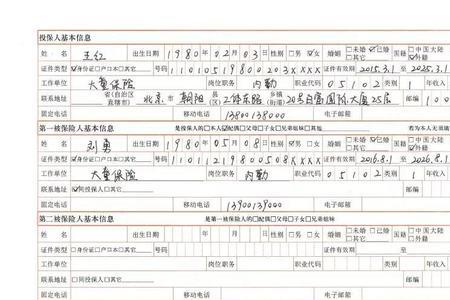 投保人基本信息
姓 名 王红 出生日期 1980年02月03日 性别 □男☑女 婚姻 □未婚☑已婚□其它 国籍 ☑中国大陆□外籍
证件类型 ☑身份证□户口本□其它 证件号码 110105198002 03XXXX 证件有效期 2015.3.1 2025.3.1
工作单位 大童保险 岗位职务 内勤 职业代码 05102 1 年收入
联系地址 省(自治区直辖市) 北京 市 朝阳 区 工体东路 乡镇(街道) 20号百富国际大厦25层 邮编 100
固定电话 移动电话 13800138000 电子邮箱
第一被保险人基本信息 是投保人的□本人☑配偶□父母□子女□兄弟姐妹 若为本人无须填
姓 名 刘勇 出生日期 1980年05月08日 性别 ☑男□女 婚姻 □未婚☑已婚□其它 国籍 ☑中国大陆□外籍
证件类型 ☑身份证□户口本□其它 证件号码 证件有效期 2016.8.1 2026.8.1
工作单位 大童保险 岗位职务 内勤 职业代码 05102 1 年收入
联系地址 ☑同投保人□其它
固定电话 移动电话 13900139000 电子邮箱
第二被保险人基本信息 是第一被保险人的□配偶□父母□子女□兄弟姐妹
姓 名 出生日期 年 月 日 性别 □男□女 婚姻 □未婚□已婚□其它 国籍 □中国大陆□外籍
证件类型 □身份证□户口本□其它 证件号码 证件有效期
工作单位 岗位职务 职业代码 年收入
联系地址 □同投保人□其它
固定电话 移动电话 电子邮箱